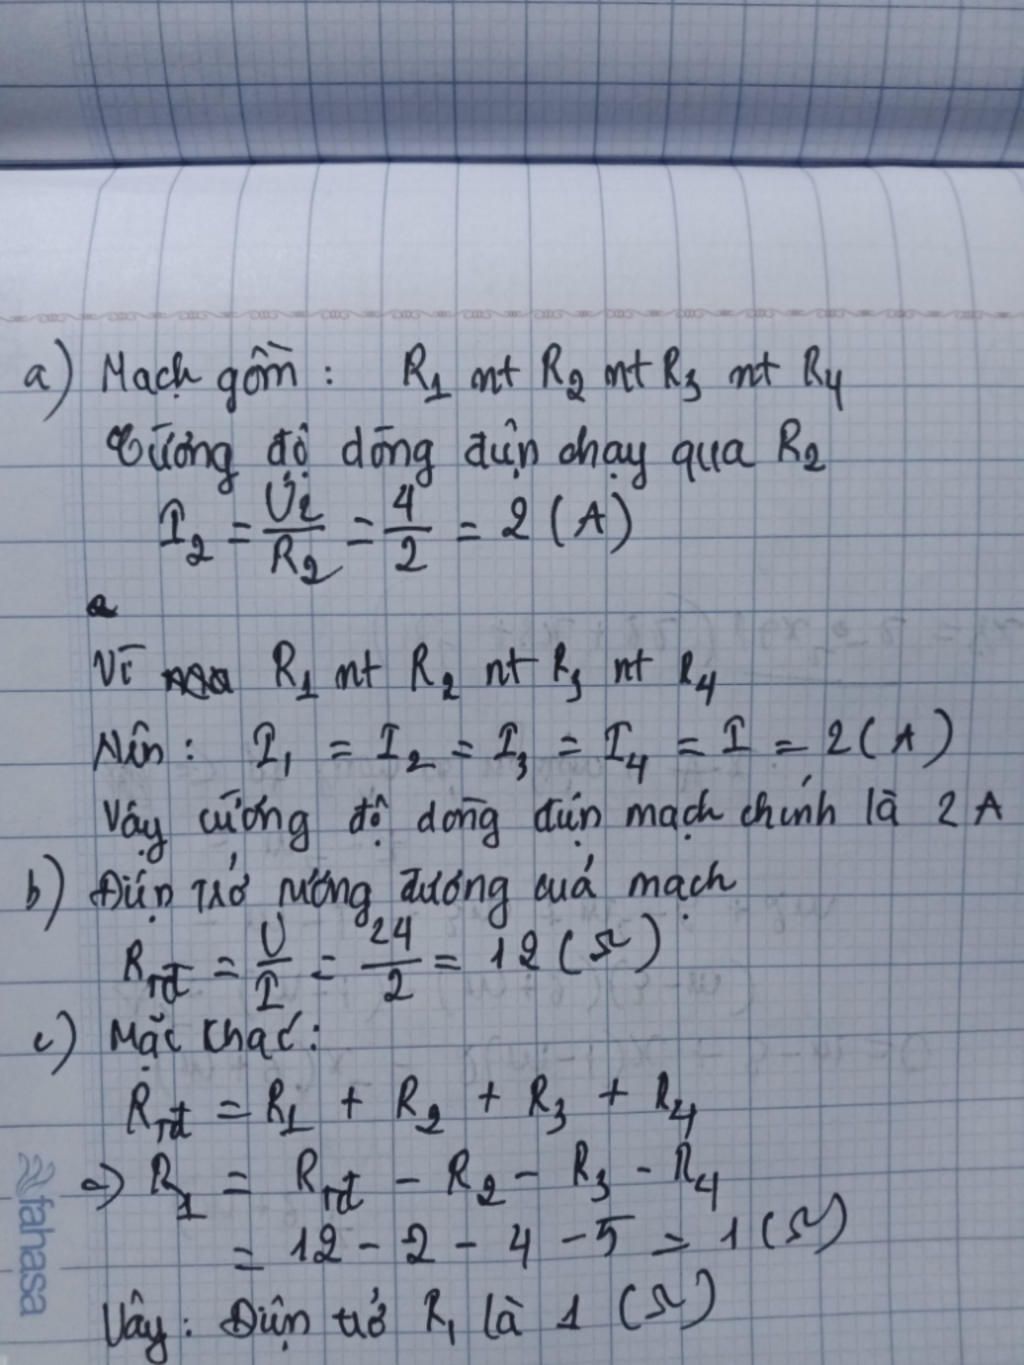 a) Mạch gồm : R₁ nt R₂ nt R₃ nt R₄
Cường độ dòng điện chạy qua R₂
I₂ = U₂/R₂ = 4/2 = 2 (A)
Vì R₁ nt R₂ nt R₃ nt R₄
Nên : I₁ = I₂ = I₃ = I₄ = I = 2 (A)
Vậy cường độ dòng điện mạch chính là 2 A
b) Điện trở tương đương của mạch
Rtđ = U/I = 24/2 = 12 (Ω)
c) Mặc khác :
Rtđ = R₁ + R₂ + R₃ + R₄
=> R₁ = Rtđ - R₂ - R₃ - R₄
= 12 - 2 - 4 - 5 = 1 (Ω)
Vậy : Điện trở R₁ là 1 (Ω)
fahasa